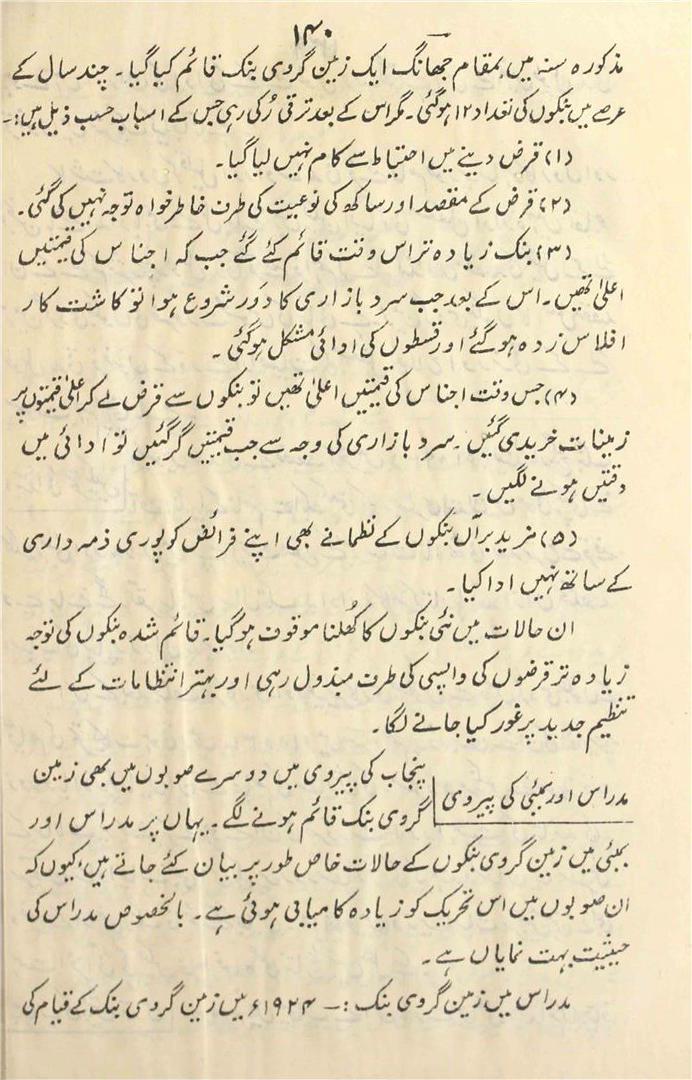 ۱۴۰
مذکورہ سنہ میں بمقام جھانگ ایک زمین گروی بنک قائم کیا گیا۔ چند سال کے
عرصے میں بنکوں کی تعداد ۱۲ ہوگئی۔ مگر اس کے بعد ترقی رُکی رہی جس کے اسباب حسب ذیل ہیں:۔
(۱) قرض دینے میں احتیاط سے کام نہیں لیا گیا۔
(۲) قرض کے مقصد اور ساکھ کی نوعیت کی طرف خاطر خواہ توجہ نہیں کی گئی۔
(۳) بنک زیادہ تر اس وقت قائم کئے گئے جب کہ اجناس کی قیمتیں
اعلیٰ تھیں۔ اس کے بعد جب سرد بازاری کا دَور شروع ہوا تو کاشت کار
افلاس زدہ ہوگئے اور قسطوں کی ادائی مشکل ہوگئی۔
(۴) جس وقت اجناس کی قیمتیں اعلیٰ تھیں تو بنکوں سے قرض لے کر اعلیٰ قیمتوں پر
زمینات خریدی گئیں۔ سرد بازاری کی وجہ سے جب قیمتیں گر گئیں تو ادائی میں
دقتیں ہونے لگیں۔
(۵) مزید برآں بنکوں کے نظما نے بھی اپنے فرائض کو پوری ذمہ داری
کے ساتھ نہیں ادا کیا۔
ان حالات میں نئی بنکوں کا کھُلنا موقوف ہوگیا۔ قائم شدہ بنکوں کی توجہ
زیادہ تر قرضوں کی واپسی کی طرف مبذول رہی اور بہتر انتظامات کے لئے
تنظیم جدید پر غور کیا جانے لگا۔
مدراس اور بمبئی کی پیروی
پنجاب کی پیروی میں دوسرے صوبوں میں بھی زمین
گروی بنک قائم ہونے لگے۔ یہاں پر مدراس اور
بمبئی میں زمین گروی بنکوں کے حالات خاص طور پر بیان کئے جاتے ہیں، کیوں کہ
ان صوبوں میں اس تحریک کو زیادہ کامیابی ہوئی ہے۔ بالخصوص مدراس کی
حیثیت بہت نمایاں ہے۔
مدراس میں زمین گروی بنک :۔ ۱۹۲۴ء میں زمین گروی بنک کے قیام کی